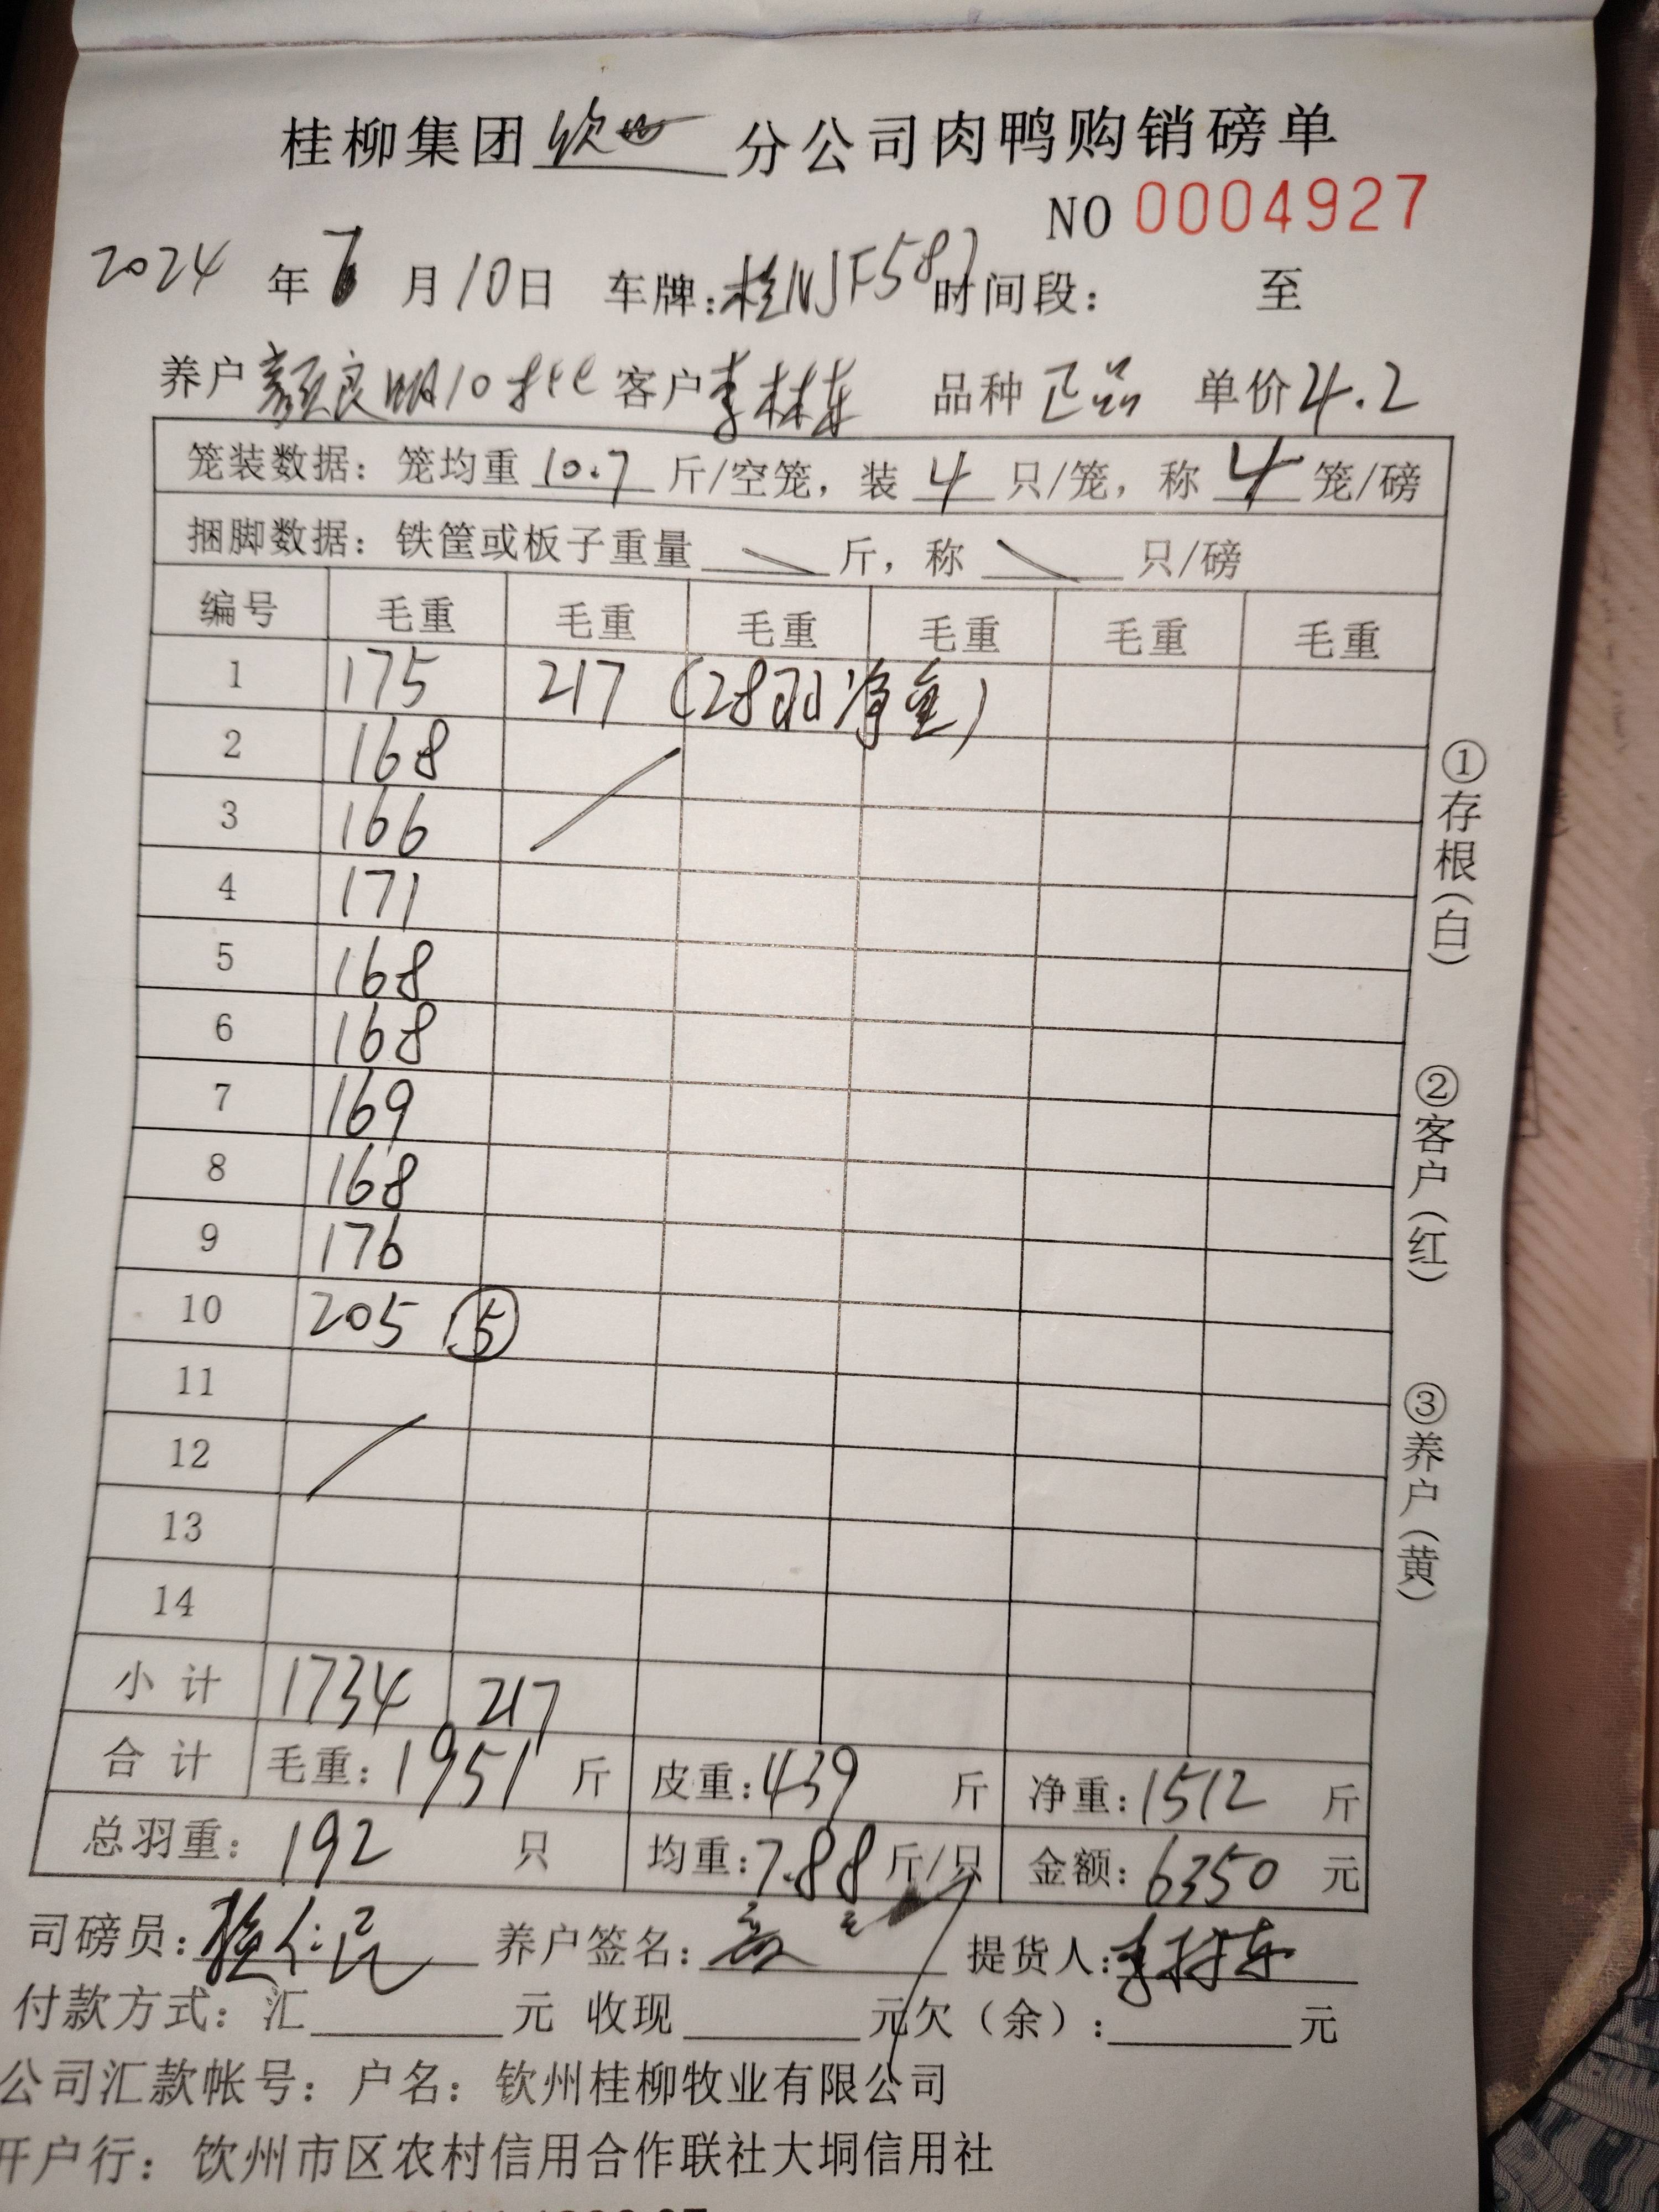 桂柳集团钦州分公司肉鸭购销磅单
NO 0004927
2024年7月10日 车牌:桂NJF587 时间段: 至
养户颜良明10批 客户李林东 品种正品 单价4.2
笼装数据: 笼均重10.7斤/空笼, 装4只/笼, 称4笼/磅
捆脚数据: 铁筐或板子重量 斤, 称 只/磅
编号 毛重 毛重 毛重 毛重 毛重 毛重
1 175 217 (28羽净重)
2 168
3 166
4 171
5 168
6 168
7 169
8 168
9 176
10 205 ⑤
11
12
13
14
小计 1734 217
合计 毛重:1951斤 皮重:439斤 净重:1512斤
总羽重:192只 均重:7.88斤/只 金额:6350元
司磅员: 养户签名: 提货人:李林东
付款方式: 汇 元 收现 元欠(余): 元
公司汇款帐号: 户名: 钦州桂柳牧业有限公司
开户行: 钦州市区农村信用合作联社大垌信用社
①存根(白)
②客户(红)
③养户(黄)